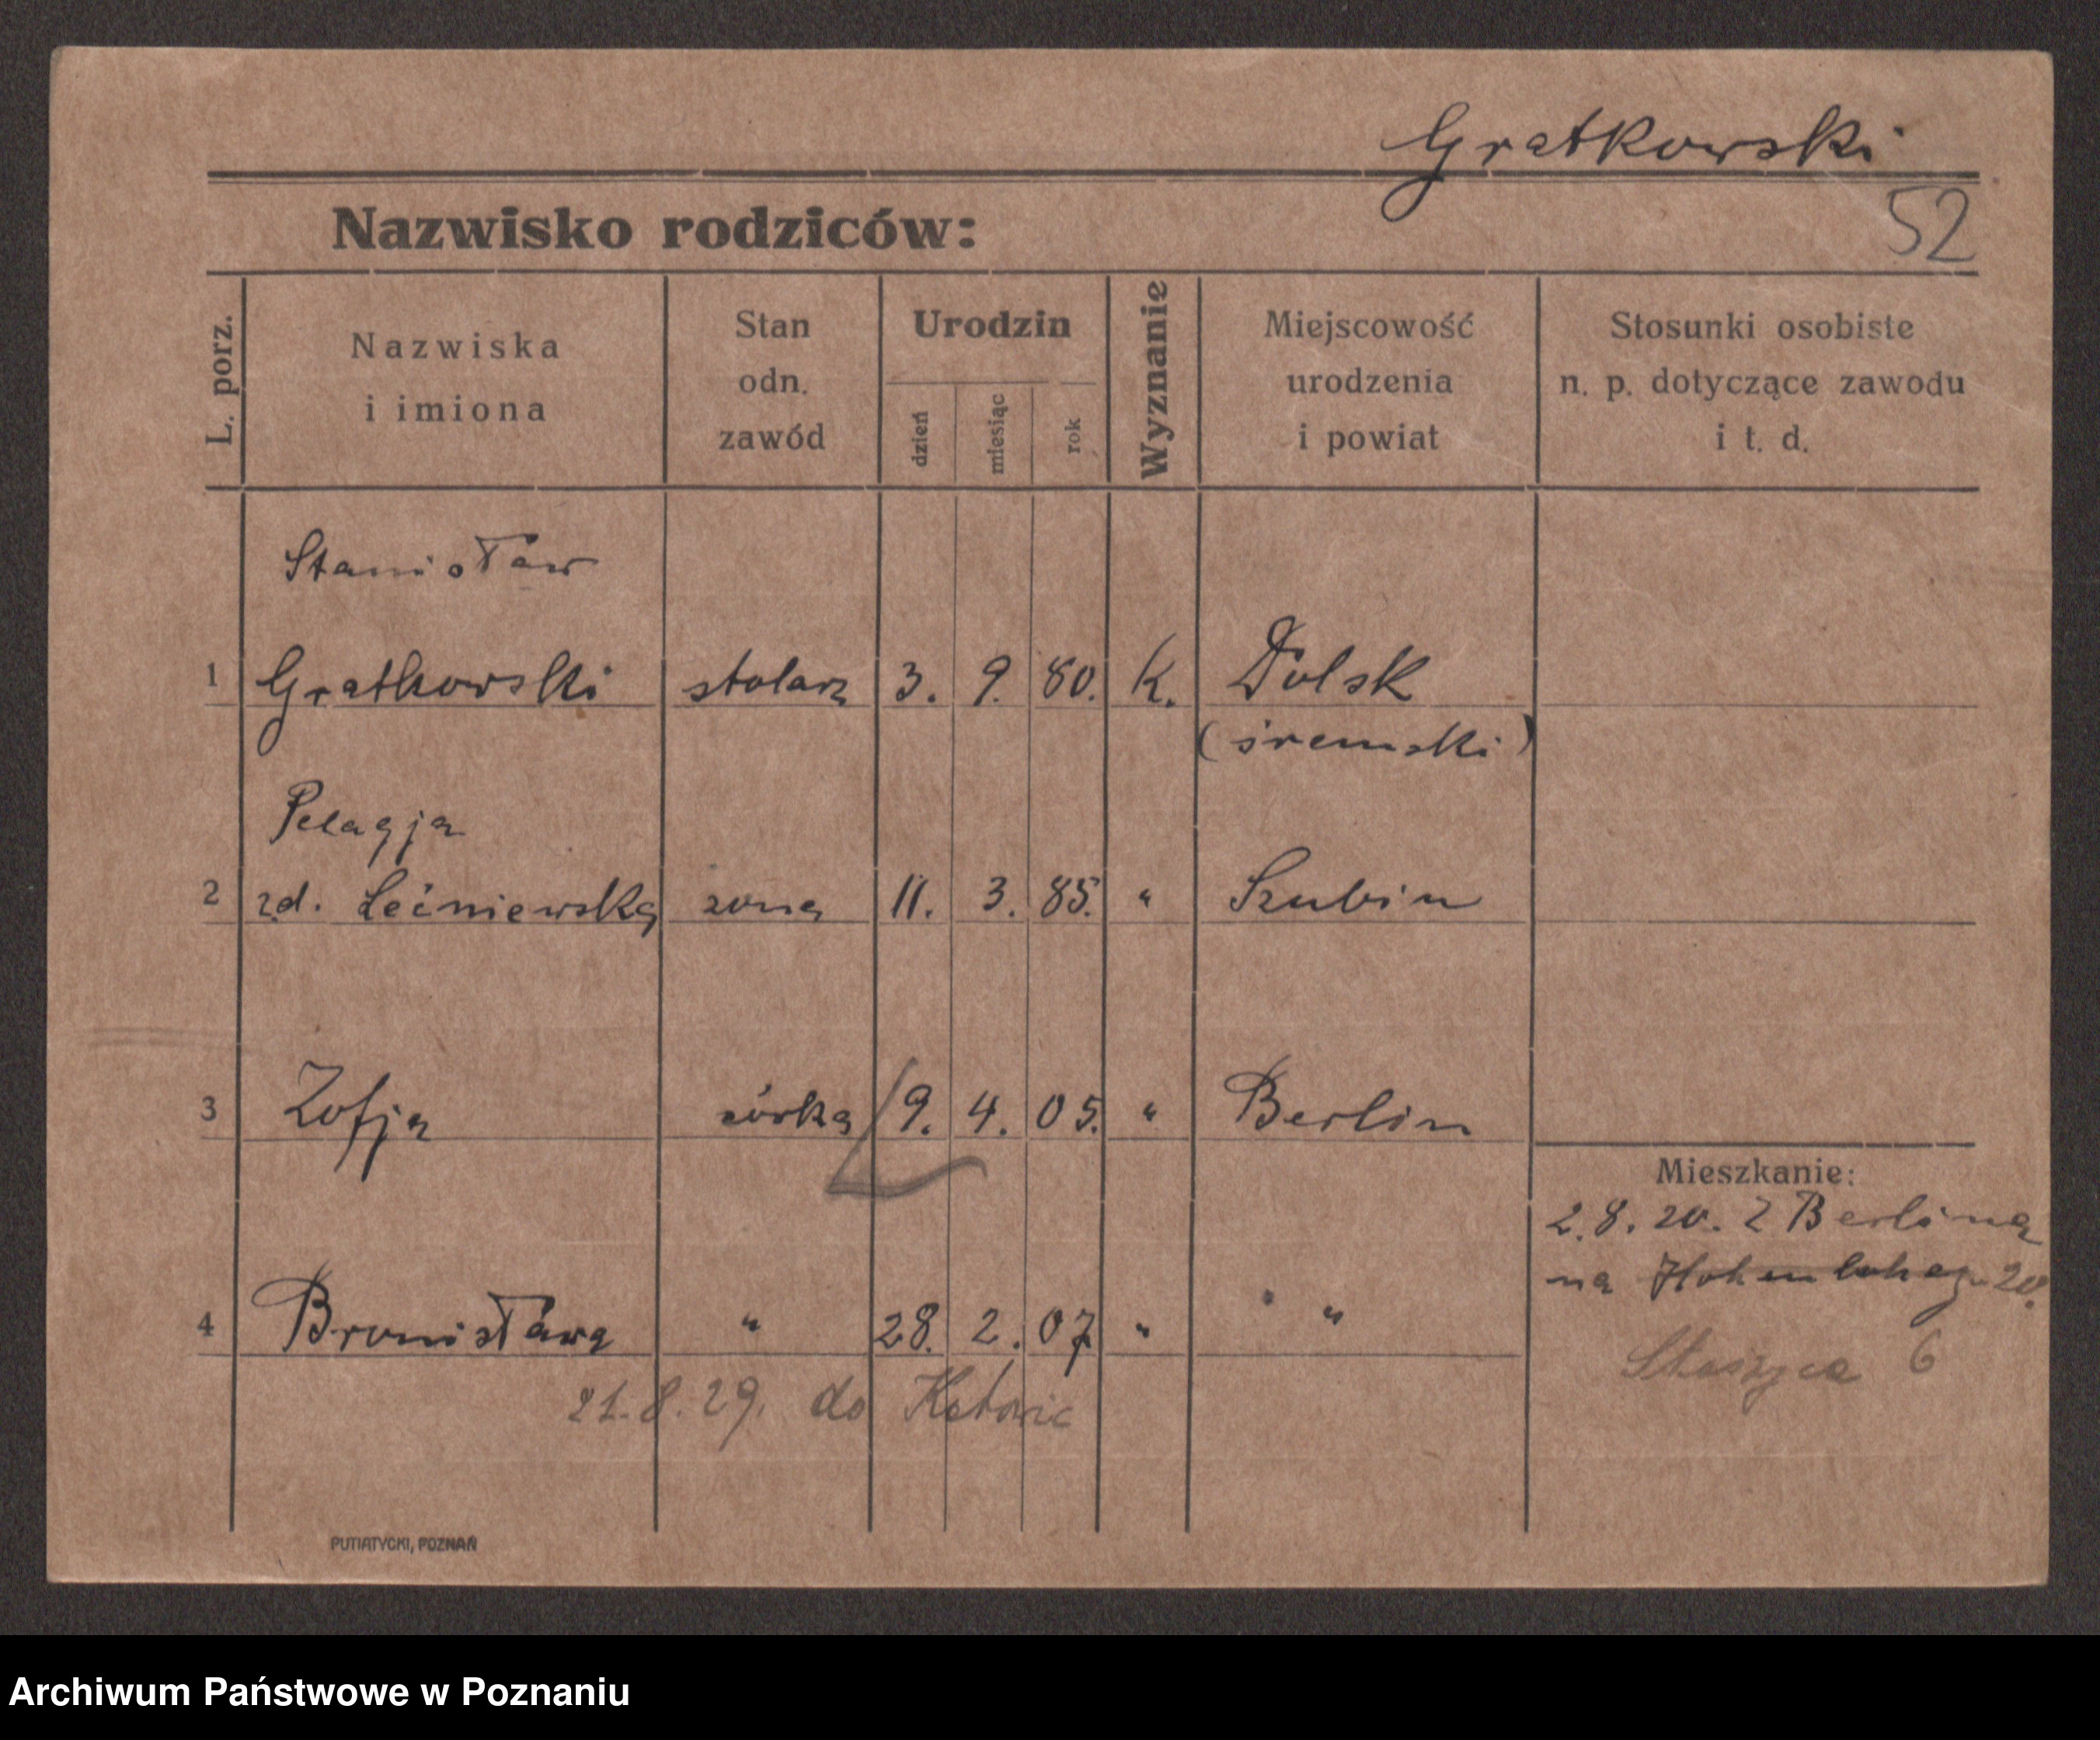 Gratkowski
52
Nazwisko rodziców:
L. porz.
Nazwiska
i imiona
Stan
odn.
zawód
Urodzin
dzień
miesiąc
rok
Wyznanie
Miejscowość
urodzenia
i powiat
Stosunki osobiste
n. p. dotyczące zawodu
i t. d.
Stanisław
1 Gratkowski stolarz 3. 9. 80. k. Dolsk
(śremski)
Pelagja
2 zd. Leśniewska żona 11. 3. 85. " Szubin
3 Zofja córka 9. 4. 05. " Berlin
Mieszkanie:
2.8.20. z Berlina
na 20.
4 Bronisława " 28. 2. 07 " "
Staszyca 6
21.8.29. do Katowic
PUTIATYCKI, POZNAŃ
Archiwum Państwowe w Poznaniu